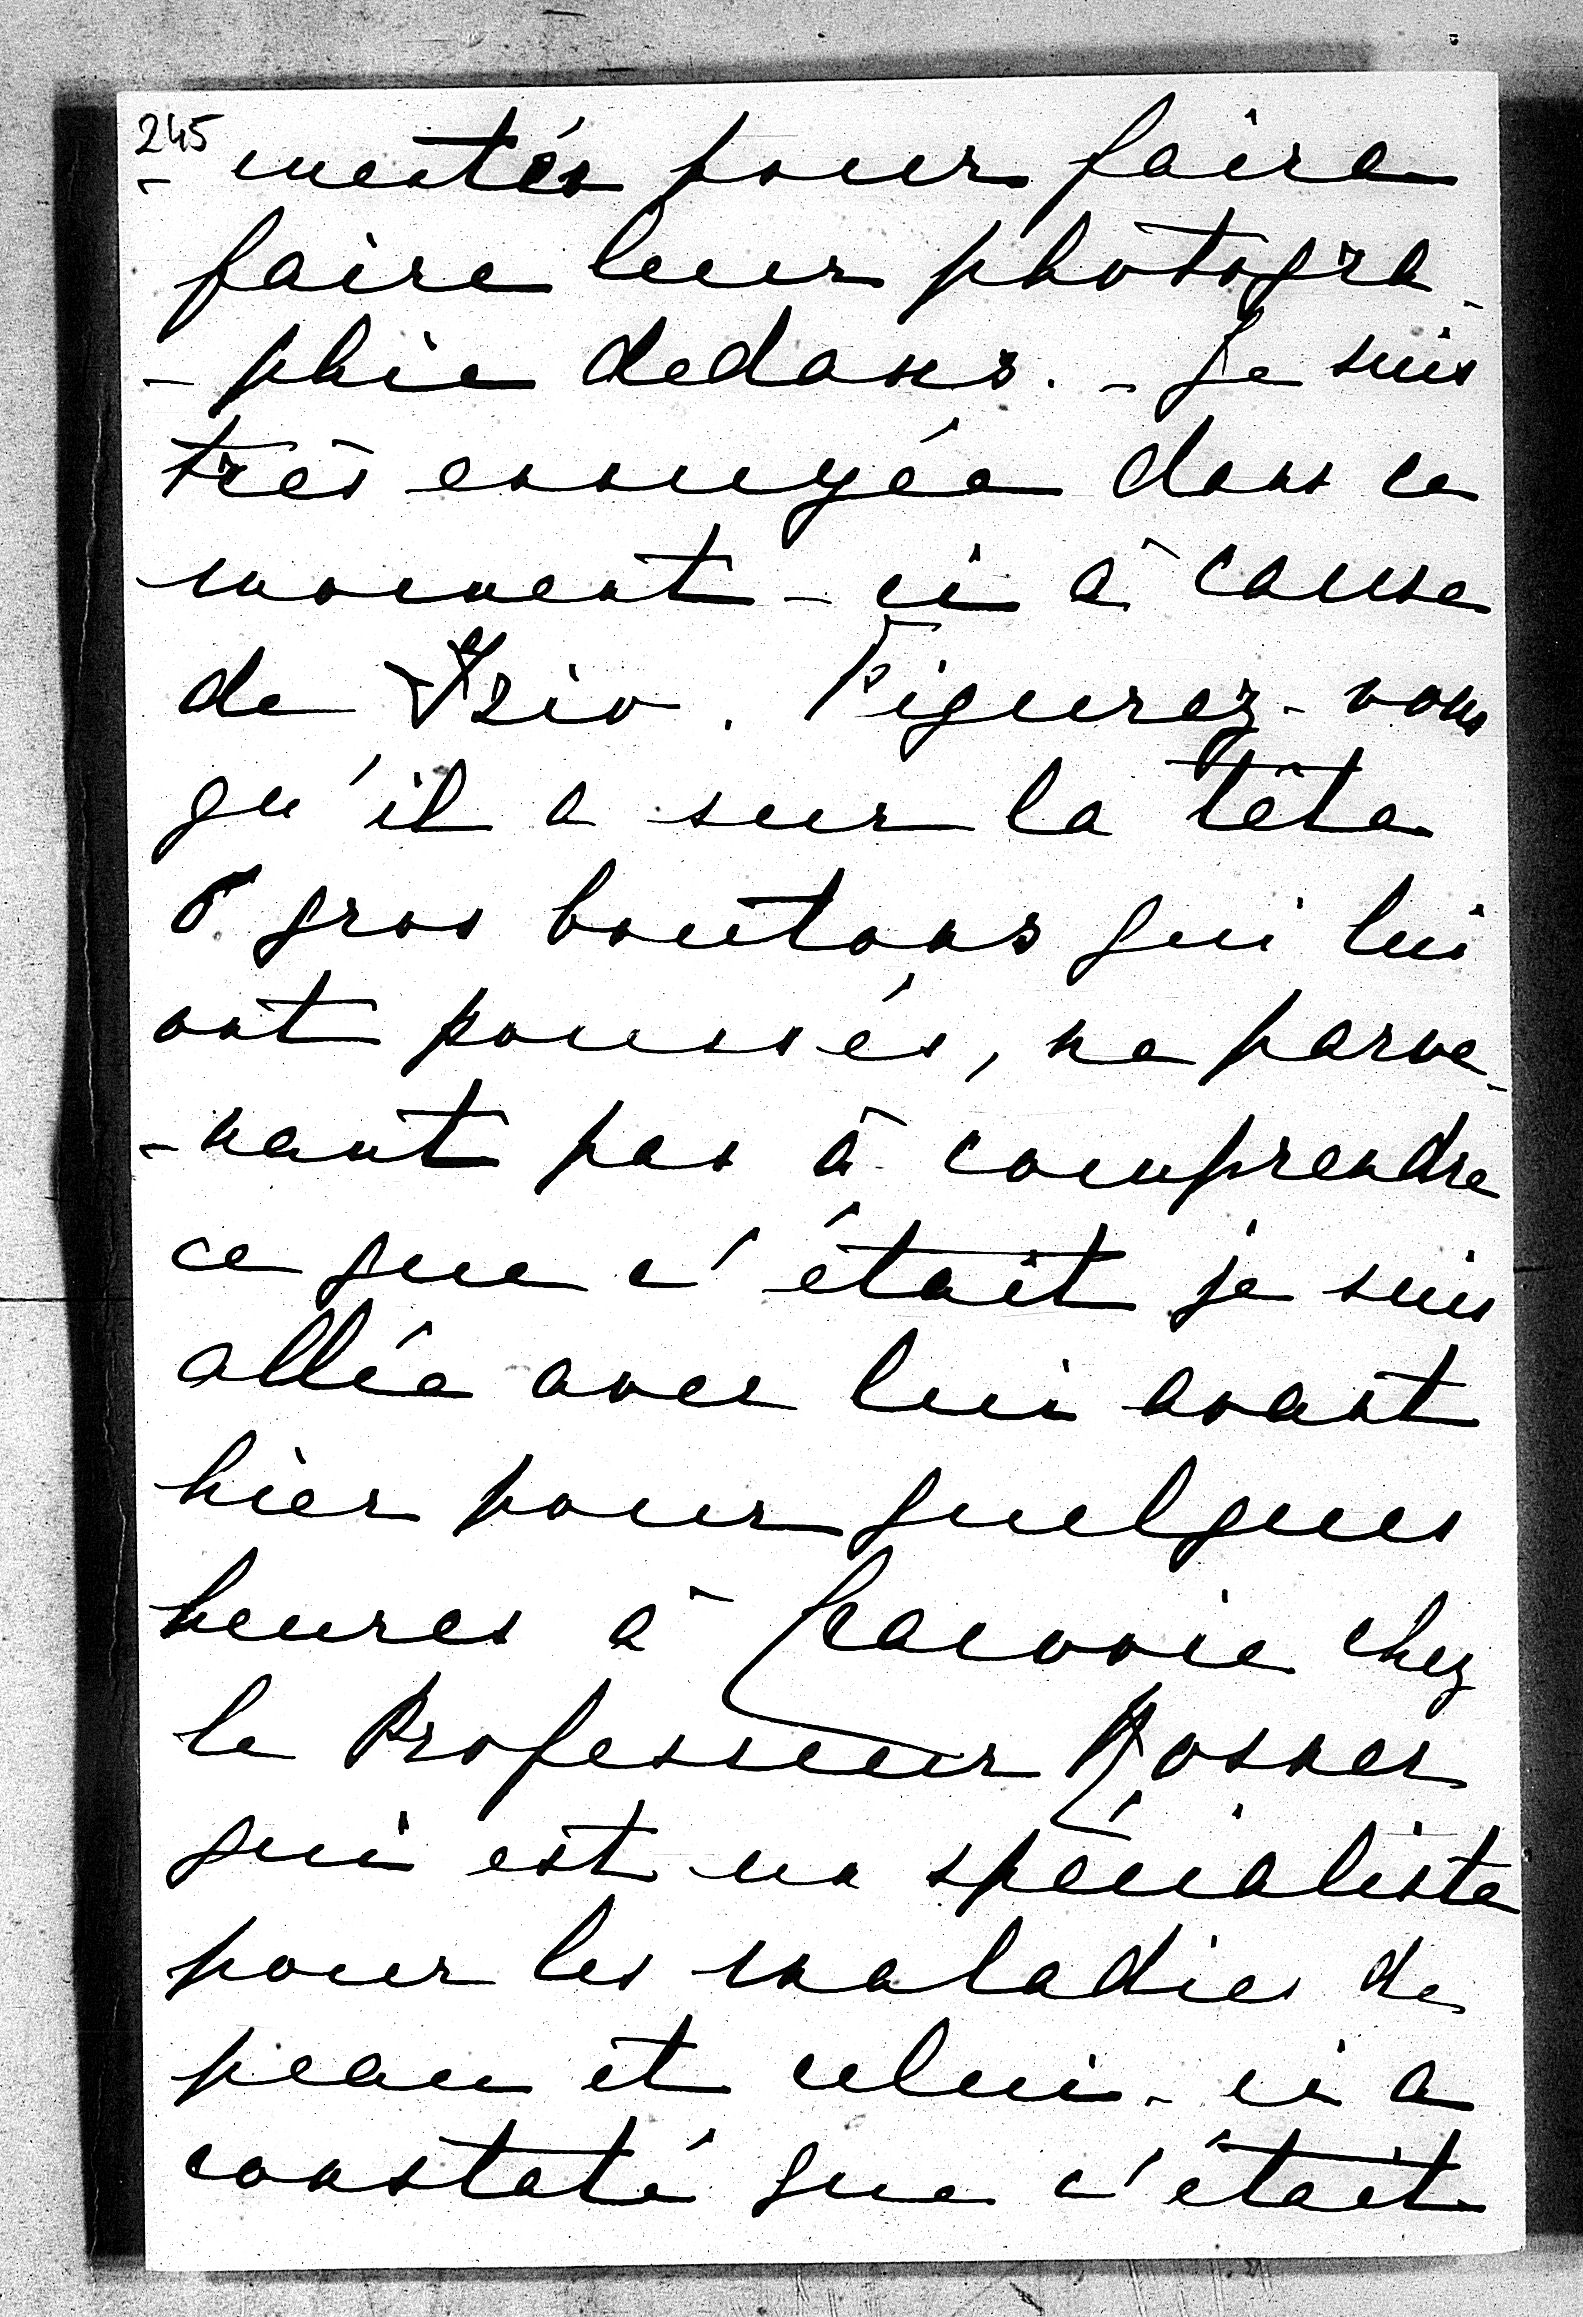 245
- mentés pour faire
faire leur photogra-
- phie dedans. - Je suis
très ennuyée dans ce
moment-ci à cause
de Izio. Figurez-vous
qu'il a sur la tête
5 gros boutons qui lui
ont poussés, ne parve-
- nant pas à comprendre
ce que c'était je suis
allée avec lui avant
hier pour quelques
heures à Cracovie chez
le Professeur Rosner
qui est un spécialiste
pour les maladies de
peau et celui-ci a
constaté que c'était